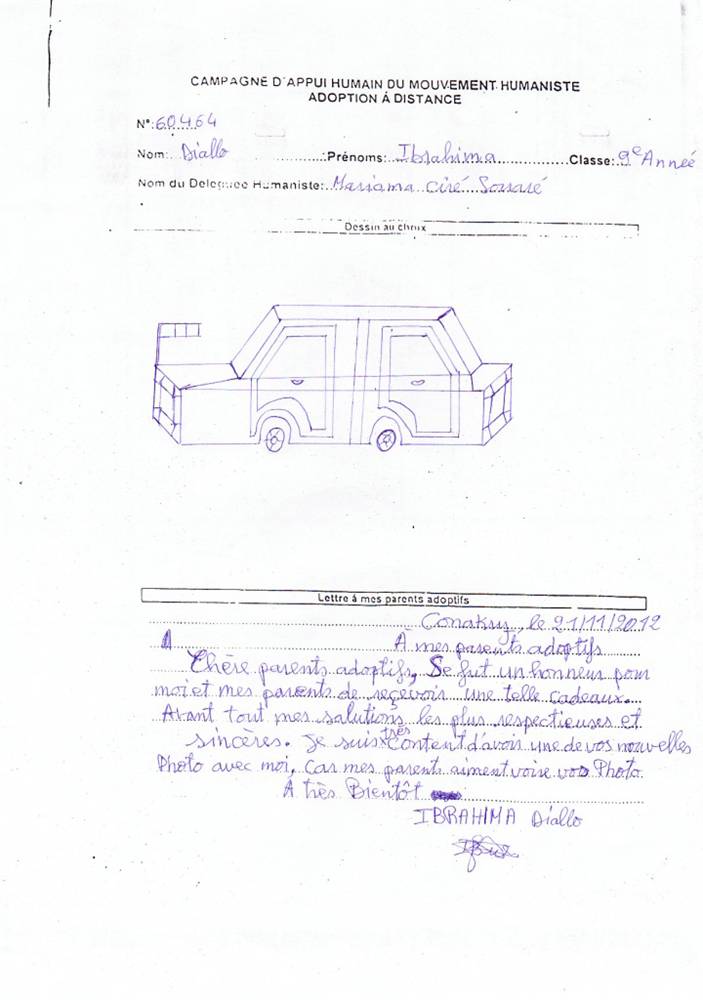 CAMPAGNE D'APPUI HUMAIN DU MOUVEMENT HUMANISTE
ADOPTION Á DISTANCE
N°: 60464
Nom: Diallo Prénoms: Ibrahima Classe: 9e Anneé
Nom du Deleguee Humaniste: Mariama Ciré
Dessin au choix
Lettre á mes parents adoptifs
Conakry, le 21/11/2012
À mes parents adoptifs
Chère parents adoptifs, Se fut un honneur pour
moi et mes parents de reçevois une telle cadeaux.
Avant tout mes salutions les plus respectieuses et
sincères. Je suis très content d'avois une de vos nouvelles
Photo avec moi, car mes parents aiment voire vos Photo.
A très Bientôt
IBRAHIMA Diallo